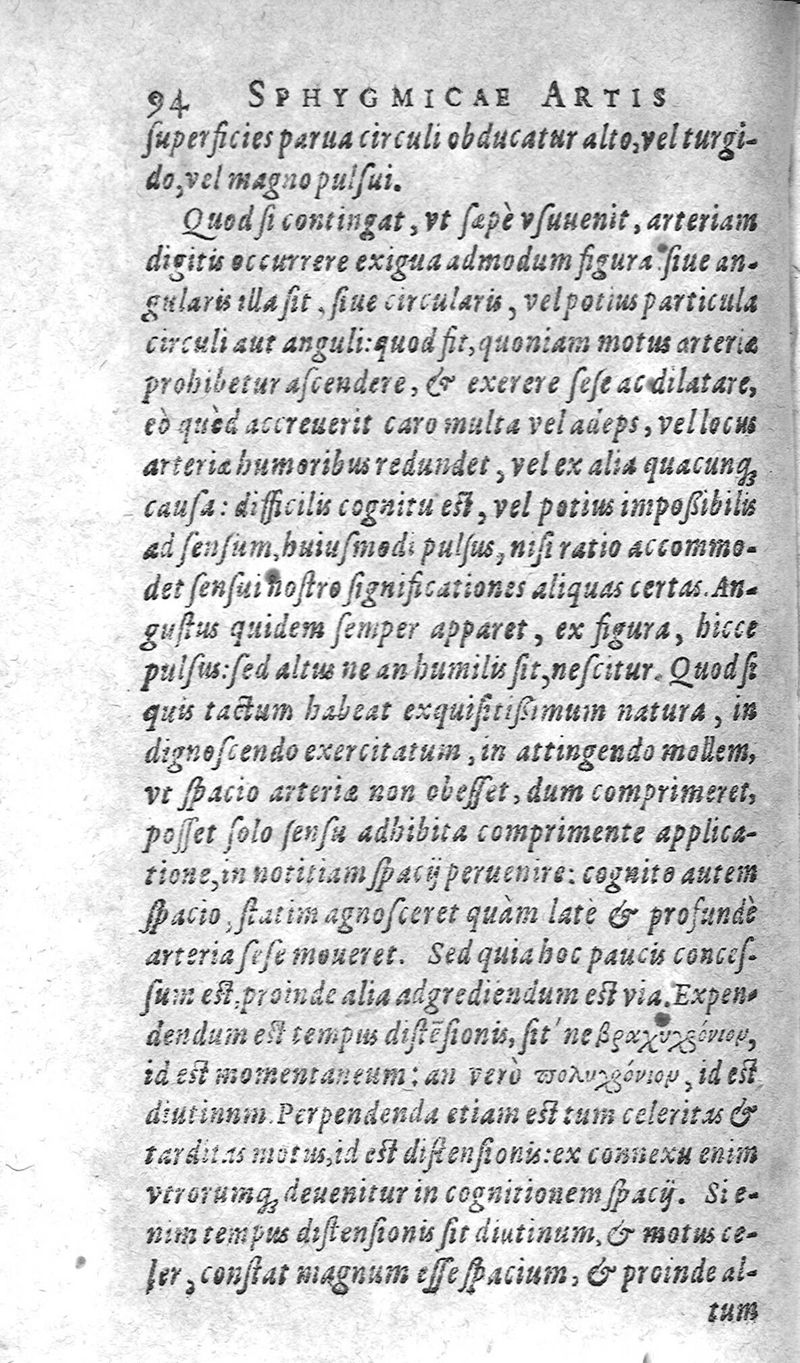 94 SPHYGMICAE ARTIS
ſuperficies parua circuli obducatur alto, vel turgi-
do, vel magno pulſui.
Quod ſi contingat, vt ſæpè vſuuenit, arteriam
digitis occurrere exigua admodum figura: ſiue an-
gularis illa ſit, ſiue circularis, vel potius particula
circuli aut anguli: quod fit, quoniam motus arteriæ
prohibetur aſcendere, & exerere ſeſe ac dilatare,
eò quòd accreuerit caro multa vel adeps, vel locus
arteriæ humoribus redundet, vel ex alia quacunq;
cauſa: difficilis cognitu eſt, vel potius impoßibilis
ad ſenſum, huiuſmodi pulſus, niſi ratio accommo-
det ſenſui noſtro ſignificationes aliquas certas. An-
guſtus quidem ſemper apparet, ex figura, hicce
pulſus: ſed altus ne an humilis ſit, neſcitur. Quod ſi
quis tactum habeat exquiſitißimum natura, in
dignoſcendo exercitatum, in attingendo mollem,
vt ſpacio arteriæ non obeſſet, dum comprimeret,
poſſet ſolo ſenſu adhibita comprimente applica-
tione, in notitiam ſpacij peruenire: cognito autem
ſpacio, ſtatim agnoſceret quàm latè & profundè
arteria ſeſe moueret. Sed quia hoc paucis conceſ-
ſum eſt, proinde alia adgrediendum eſt via. Expen-
dendum eſt tempus diſtẽſionis, ſit' ne βραχυχρόνιον,
id eſt momentaneum: an verò πολυχρόνιον, id eſt
diutinnm. Perpendenda etiam eſt tum celeritas &
tarditas motus, id eſt diſtenſionis: ex connexu enim
vtrorumq; deuenitur in cognitionem ſpacij. Si e-
nim tempus diſtenſionis ſit diutinum, & motus ce-
ler, conſtat magnum eſſe ſpacium, & proinde al-
tum